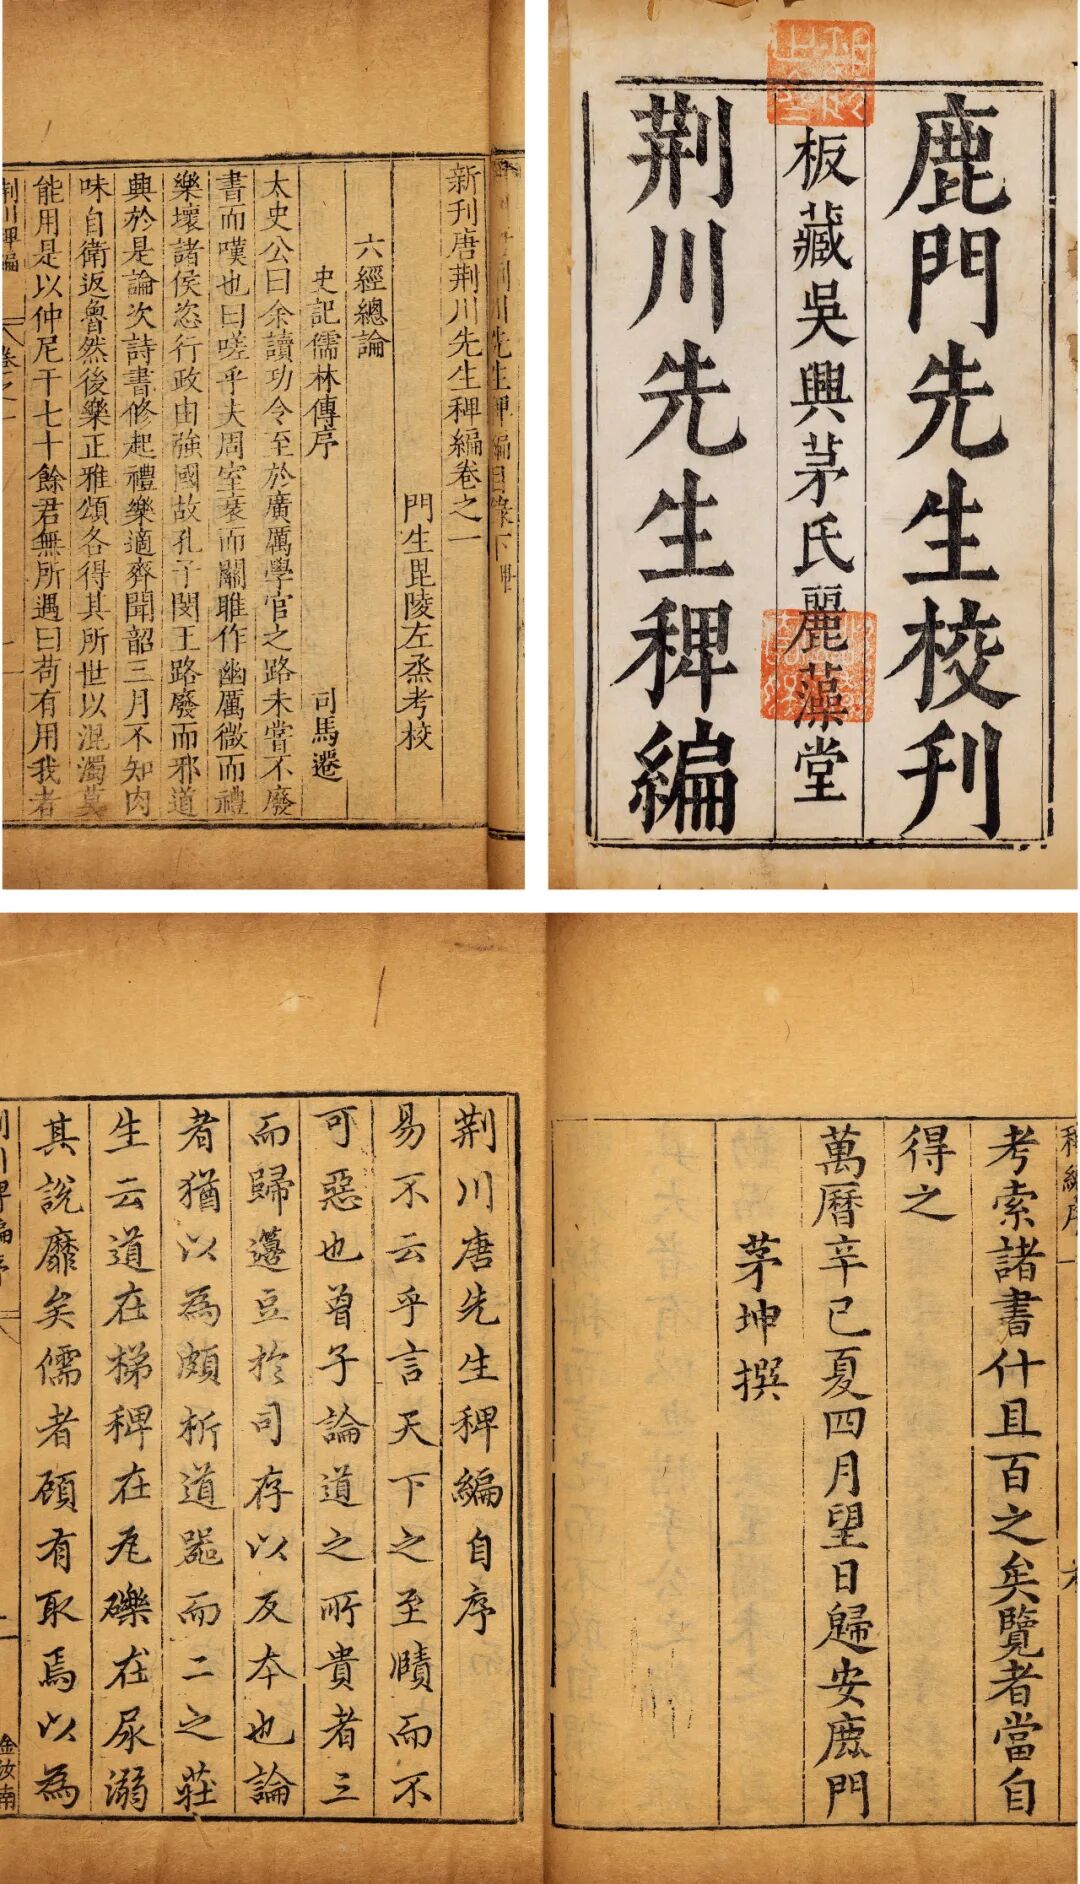 新刊唐荆川先生稗編卷之一
門生毘陵左烝考校
六經總論
史記儒林傳序
司馬遷
太史公曰余讀功令至於廣厲學官之路未嘗不廢
書而嘆也曰嗟乎夫周室衰而關雎作幽厲微而禮
樂壞諸侯恣行政由強國故孔子閔王路廢而邪道
興於是論次詩書修起禮樂適齊聞韶三月不知肉
味自衛返魯然後樂正雅頌各得其所世以混濁莫
能用是以仲尼干七十餘君無所遇曰苟有用我者
荆川稗編
卷之一
鹿門先生校刊
板藏吳興茅氏麗藻堂
荆川先生稗編
稗編序
考索諸書什且百之矣覽者當自
得之
萬曆辛巳夏四月望日歸安鹿門
茅坤撰
荆川唐先生稗編自序
易不云乎言天下之至賾而不
可惡也曾子論道之所貴者三
而歸籩豆於司存以反本也論
者猶以為頗析道器而二之莊
生云道在梯稗在瓦礫在尿溺
其說靡矣儒者顧有取焉以為
荆川稗編序
金汝南